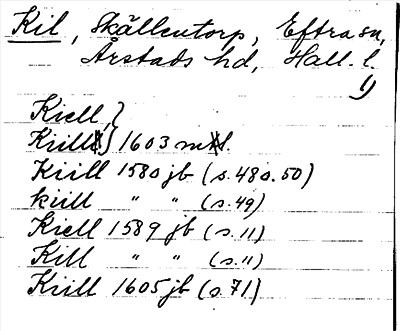 Kil, Skällentorp, Eftra sn,
Årstads hd, Hall. l.
1)
Kiell, }
Kiill } 1603 mtl.
Kiill 1580 jb (s. 48 o. 50)
kiill " " (s. 49)
Kiell 1589 jb (s. 11)
Kill " " (s. 11)
Kiill 1605 jb (s. 71)